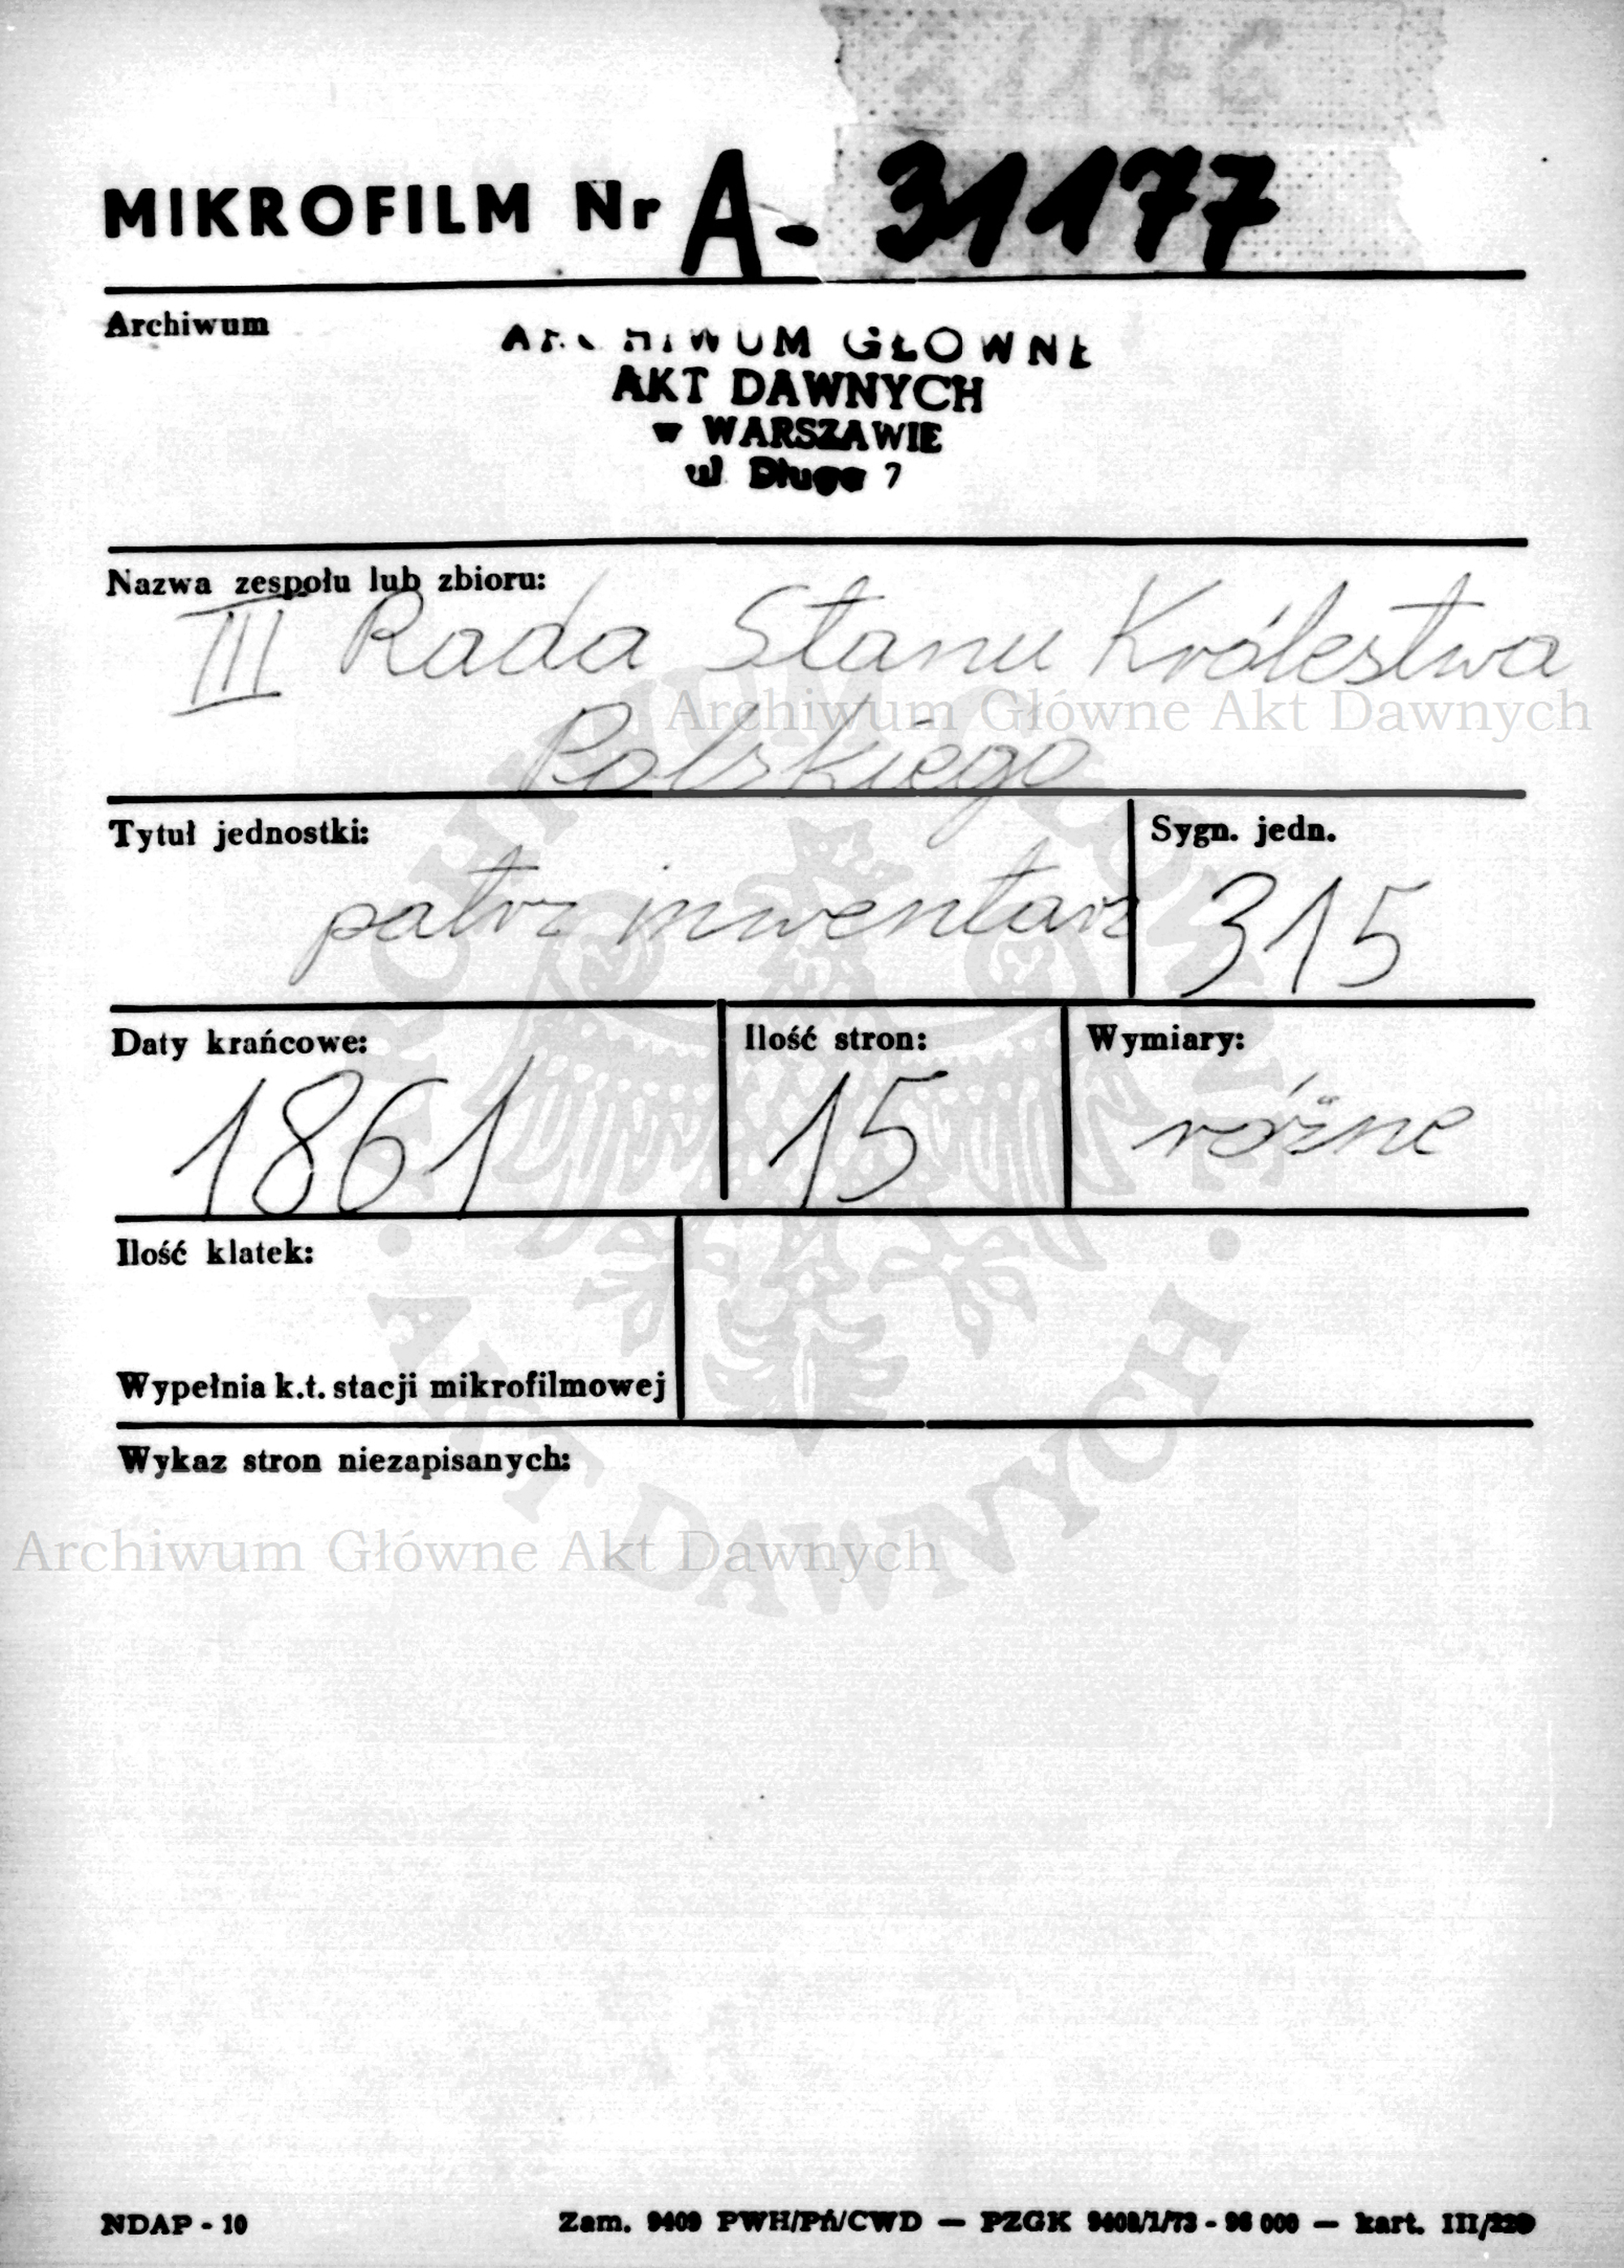 MIKROFILM Nr A- 31177
Archiwum
ARCHIWUM GŁÓWNE
AKT DAWNYCH
w WARSZAWIE
ul Długa 7
Nazwa zespołu lub zbioru:
III Rada Stanu Królestwa
Polskiego
Archiwum Główne Akt Dawnych
Tytuł jednostki:
patrz inwentarz
Sygn. jedn.
315
Daty krańcowe:
1861
Ilość stron:
15
Wymiary:
różne
Ilość klatek:
Wypełnia k.t. stacji mikrofilmowej
Wykaz stron niezapisanych:
Archiwum Główne Akt Dawnych
ARCHIWUM GŁÓWNE • AKT DAWNYCH •
NDAP - 10
Zam. 9409 PWH/Pń/CWD — PZGK 9409/1/73 - 96 000 — kart. III/220